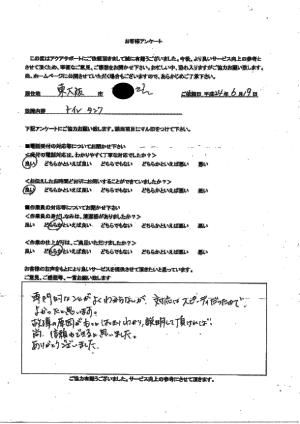 お客様アンケート
この度はアクアサポートにご依頼頂きまして誠に有難うございました。今後、より良いサービス向上の参考と
させて頂くため、率直なご意見、ご感想をお聞かせ下さい。お忙しい中、恐れ入りますがご協力お願い致します。
尚、ホームページに公開させていただく場合もございますので、あらかじめご了承下さい。
居住地 東大阪 市 ご依頼日 平成24年6月19日
依頼内容 トイレ タンク
下記アンケートにご協力お願い致します。該当項目にマル印をつけて下さい。
■電話受付の対応等についてお聞かせ下さい
<受付の電話対応は、わかりやすく丁寧な対応でしたか?>
良い どちらかといえば良い どちらかといえば悪い 悪い
<お伝えしたお時間どおりにお伺いすることができていましたか?>
良い どちらかといえば良い どちらかといえば悪い 悪い
■作業員の対応等についてお聞かせ下さい
<作業員の身だしなみは、清潔感がありましたか?>
良い どちらかといえば良い どちらかといえば悪い 悪い
<作業の仕上がりは、ご満足いただけましたか?>
良い どちらかといえば良い どちらかといえば悪い 悪い
お客様のお声をもとにより良いサービスを提供させて頂きたいと思っています。
ご意見、ご感想等、一言お願い致します
専門的なことがよくわからないが、対応はスピーディだったので
よかったと思います。
故障の原因がもっとはっきりわかり、説明して頂ければ
尚、信頼もできると思いました。
ありがとうございました。
ご協力有難うございました。サービス向上の参考にさせて頂きます。